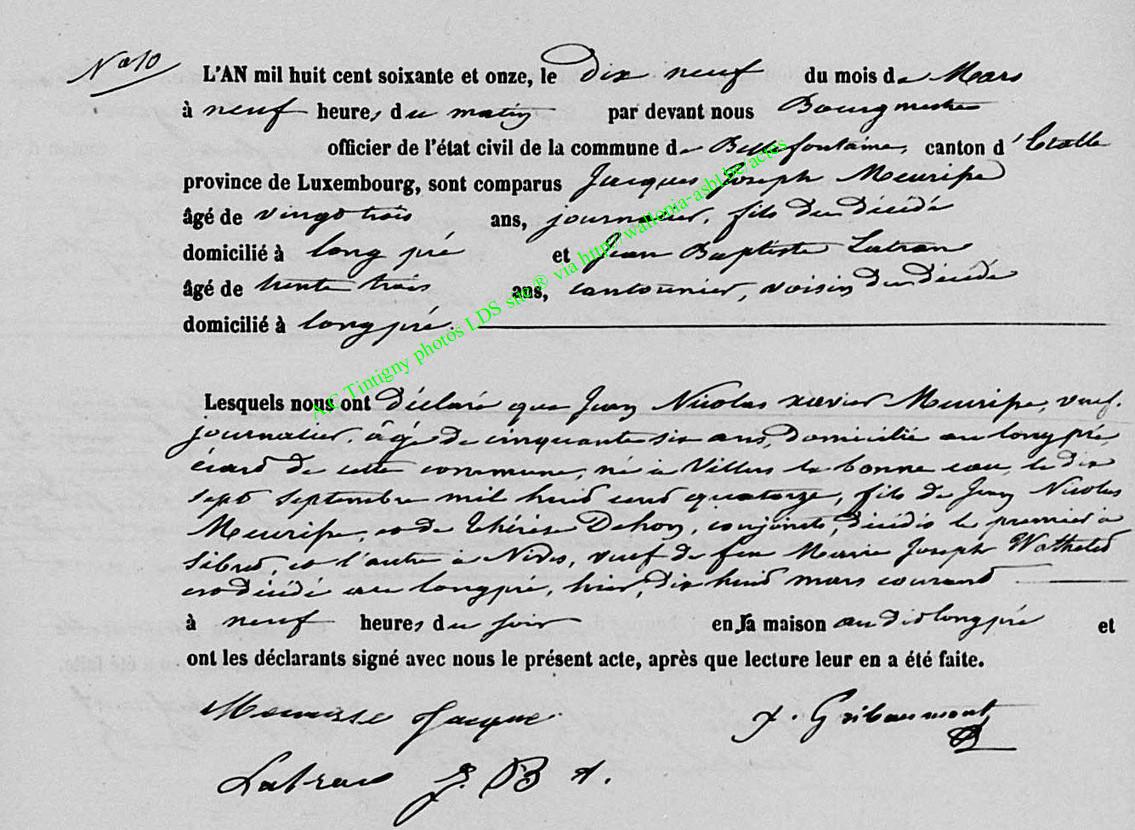 N° 10
L'AN mil huit cent soixante et onze, le dix neuf du mois de Mars
à neuf heures du matin par devant nous Bourgmestre
officier de l'état civil de la commune de Bellefontaine, canton d'Etalle
province de Luxembourg, sont comparus Jacques Joseph Meurisse
âgé de vingt trois ans, journalier, fils du décédé
domicilié à long pré et Jean Baptiste Latran
âgé de trente trois ans, cantonnier, voisin du décédé
domicilié à longpré.
Lesquels nous ont déclaré que Jean Nicolas xavier Meurisse, veuf.
journalier, âgé de cinquante six ans, domicilié au long pré
écard de cette commune, né à Villers la bonne eau, le dix
sept Septembre mil huit cent quatorze, fils de Jean Nicolas
Meurisse, et de Thérèse Dehon, conjoints décédés le premier à
Sibret, et l'autre à Nives, veuf de feu Marie Joseph Wathelet
est décédé au longpré, hier, dix huit mars courant
à neuf heures du soir en sa maison au dit longpré et
ont les déclarants signé avec nous le présent acte, après que lecture leur en a été faite.
Meurisse Jacque
Latran J. B t.
A/C Tintigny photos LDS site® via http://wallonia-asbl.be/actes